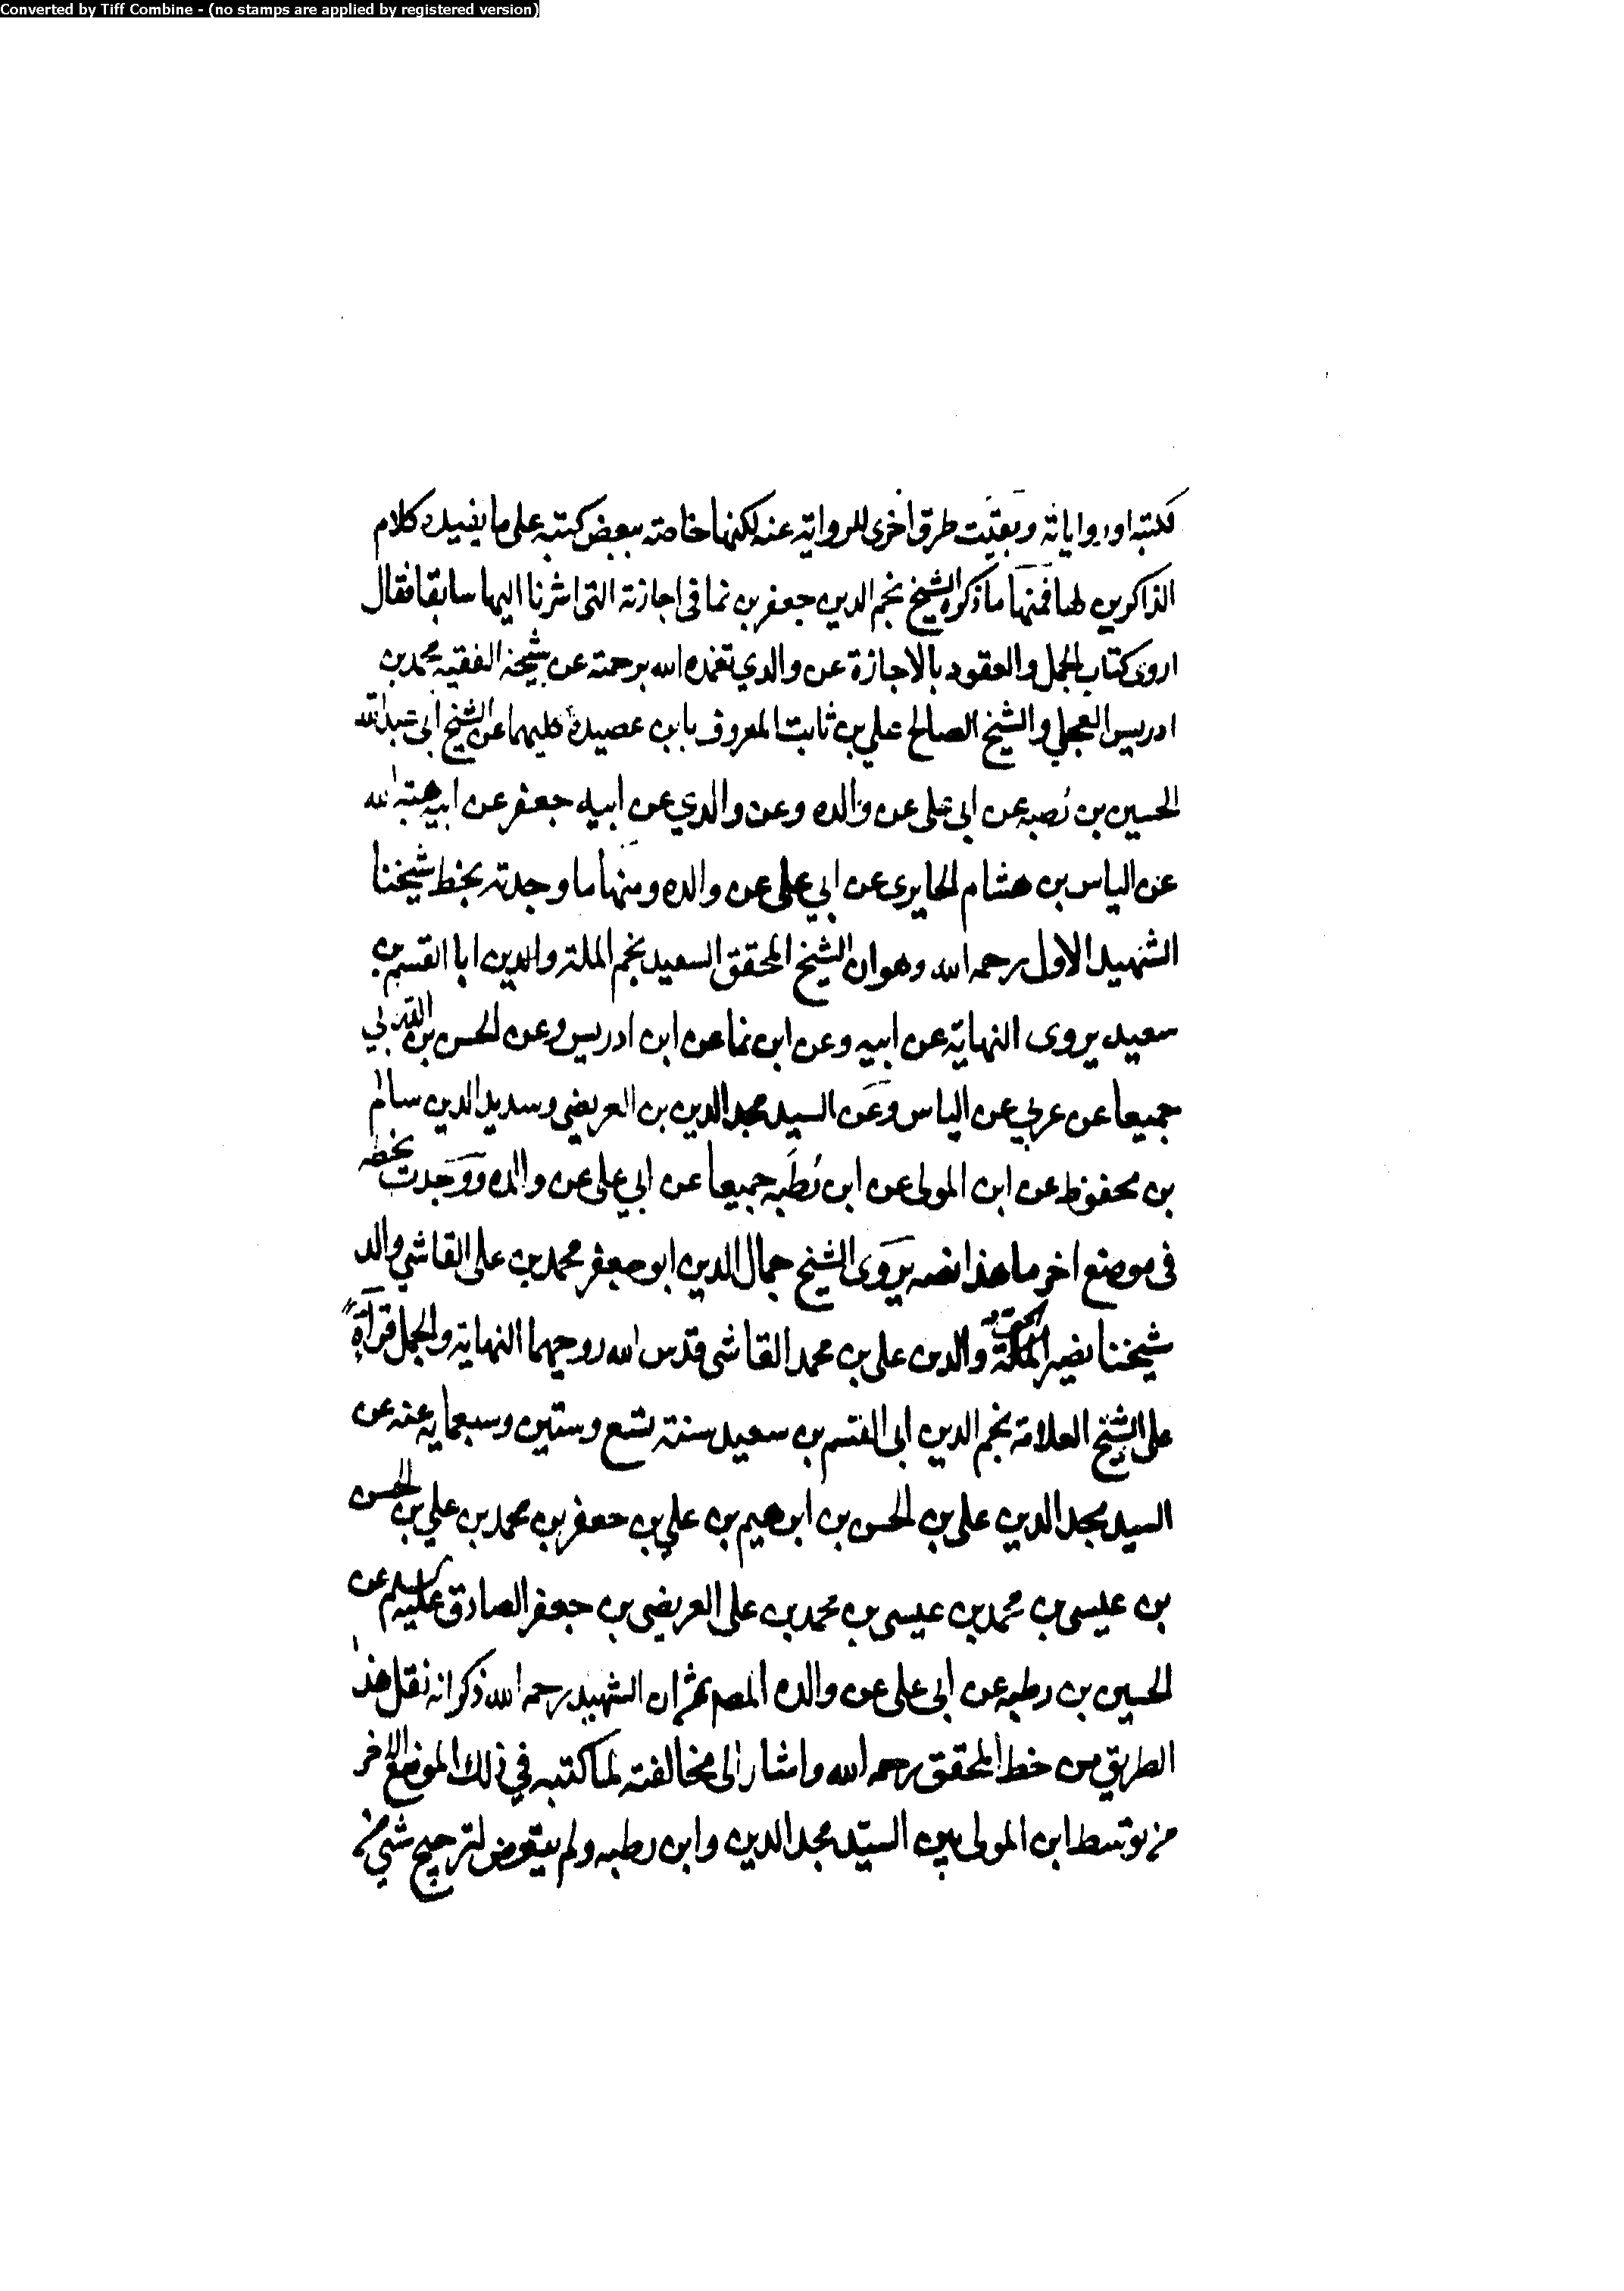 Converted by Tiff Combine - (no stamps are applied by registered version)
لكتبه او رواياته وبقيت طرق اخرى للرواية عنه لكنها خاصة ببعض كتبه على ما يفيده كلام
الذاكرين لها فمنها ما ذكره الشيخ نجم الدين جعفر بن نما فى اجازته التى اشرنا اليها سابقا فقال
اروى كتاب الجمل والعقود بالاجازة عن والدي تغمده الله برحمته عن شيخه الفقيه محمد بن
ادريس العجلي والشيخ الصالح علي بن ثابت المعروف بابن عصيدة كليهما عن الشيخ ابى عبد الله
الحسين بن رُطبه عن ابى على عن والده وعن والدي عن ابيه جعفر عن ابيه هبة الله
عن الياس بن هشام الحايرى عن ابي على عن والده ومنها ما وجدته بخط شيخنا
الشهيد الاول رحمه الله وهو ان الشيخ المحقق السعيد نجم الملة والدين ابا القسم بن
سعيد يروى النهاية عن ابيه وعن ابن نما عن ابن ادريس وعن الحسن بن الدربي
جميعا عن عربي عن الياس وعن السيد مجد الدين بن العريضى وسديد الدين سالم
بن محفوظ عن ابن المولى عن ابن رُطبه جميعا عن ابي على عن والده ووجدت بخطه
فى موضع اخر ما هذا نصه يروى الشيخ جمال الدين ابو جعفر محمد بن على القاشي والد
شيخنا نصير الملة والدين على بن محمد القاشى قدس الله روحيهما النهاية والجمل قرآءةً
على الشيخ العلامة نجم الدين ابى القسم بن سعيد سنة تسع وستين وسبعماية عنه عن
السيد مجد الدين على بن الحسن بن ابرهيم بن علي بن جعفر بن محمد بن علي بن الحسن
بن عيسى بن محمد بن عيسى بن محمد بن على العريضى بن جعفر الصادق عليه السلم عن
الحسين بن رطبه عن ابى على عن والده المصم ثم ان الشهيد رحمه الله ذكر انه نقل هذا
الطريق من خط المحقق رحمه الله واشار الى مخالفته لما كتبه في ذلك الموضع الاخر
من توسط ابن المولى بين السيّد مجد الدين وابن رطبه ولم يتعرض لترجيح شئ